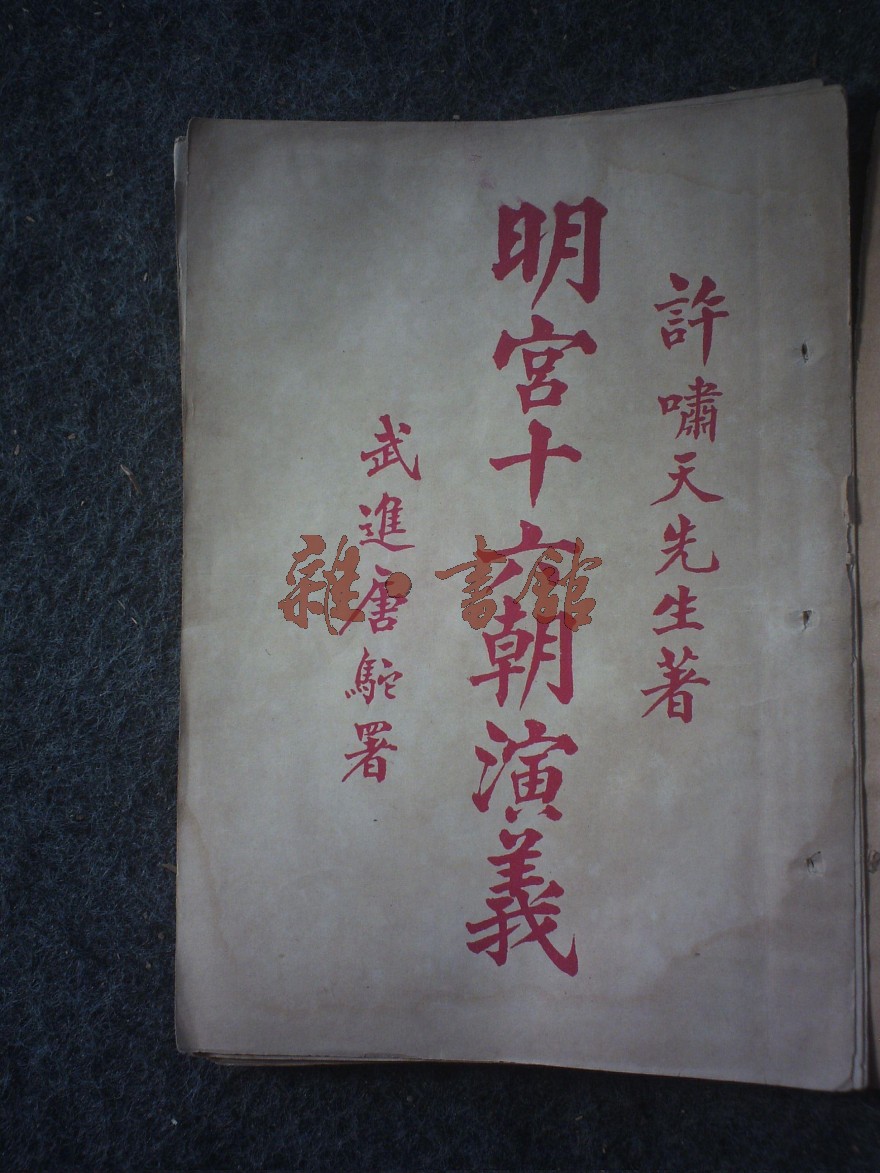 許嘯天先生著
明宮十六朝演義
武進唐駝署
雜·書館